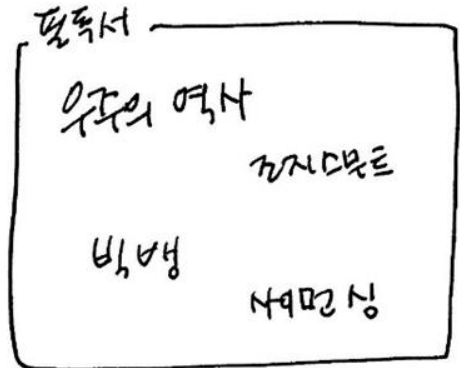 필독서
우주의 역사
조지스무트
빅뱅
사이먼 싱